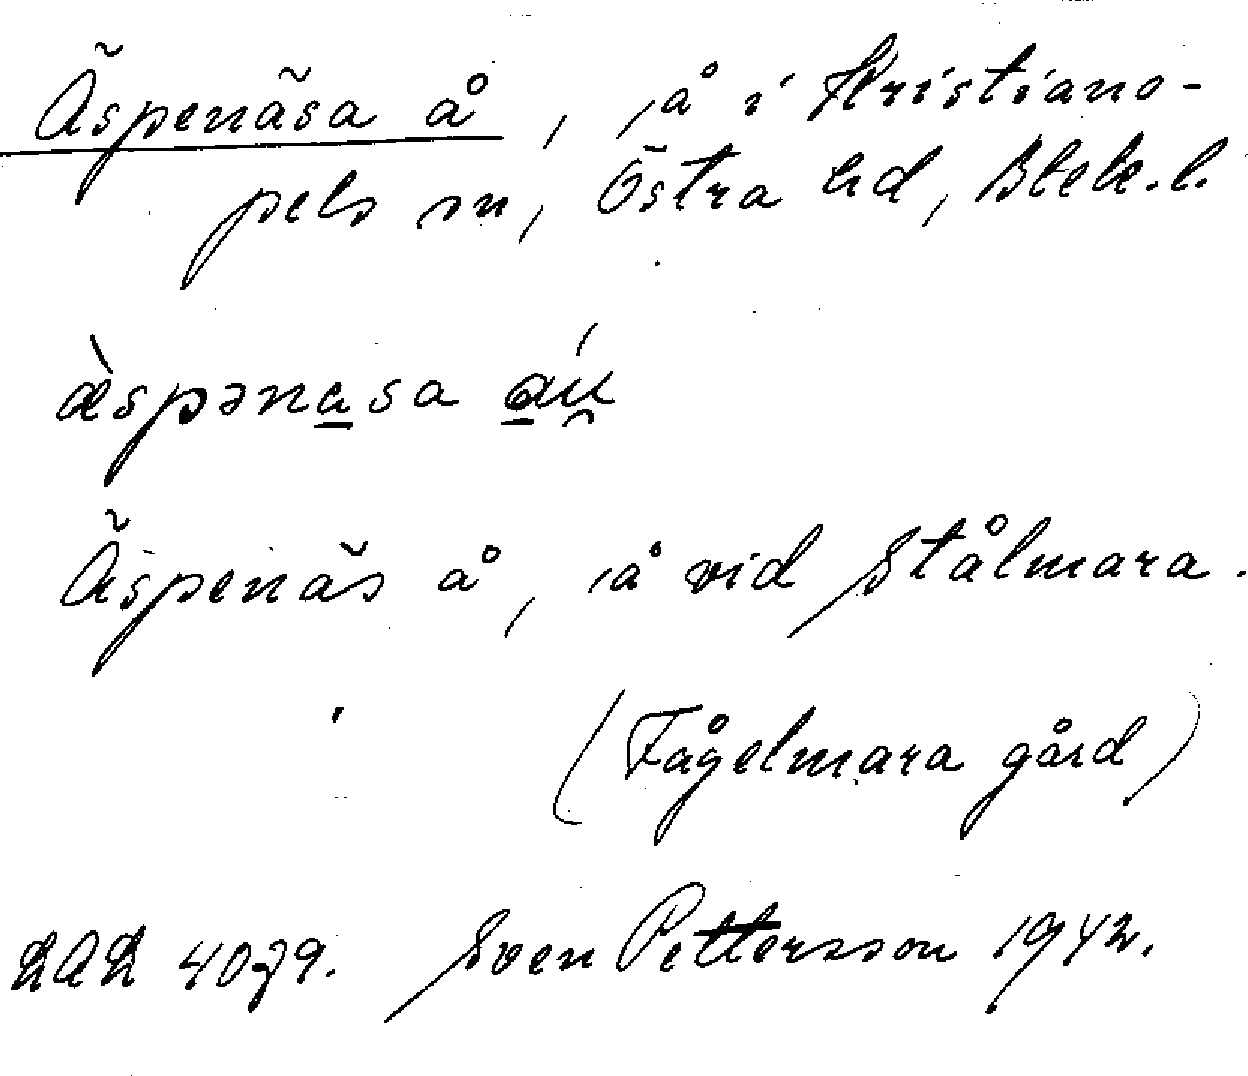 Äspenäsa å, å i Kristiano-
pels sn, Östra hd, Blek. l.
æ̀spəna̲sa a̲ú̯
Äspenäs å, å vid Stålmara.
(Fågelmara gård)
LAL 4079. Sven Pettersson 1942.